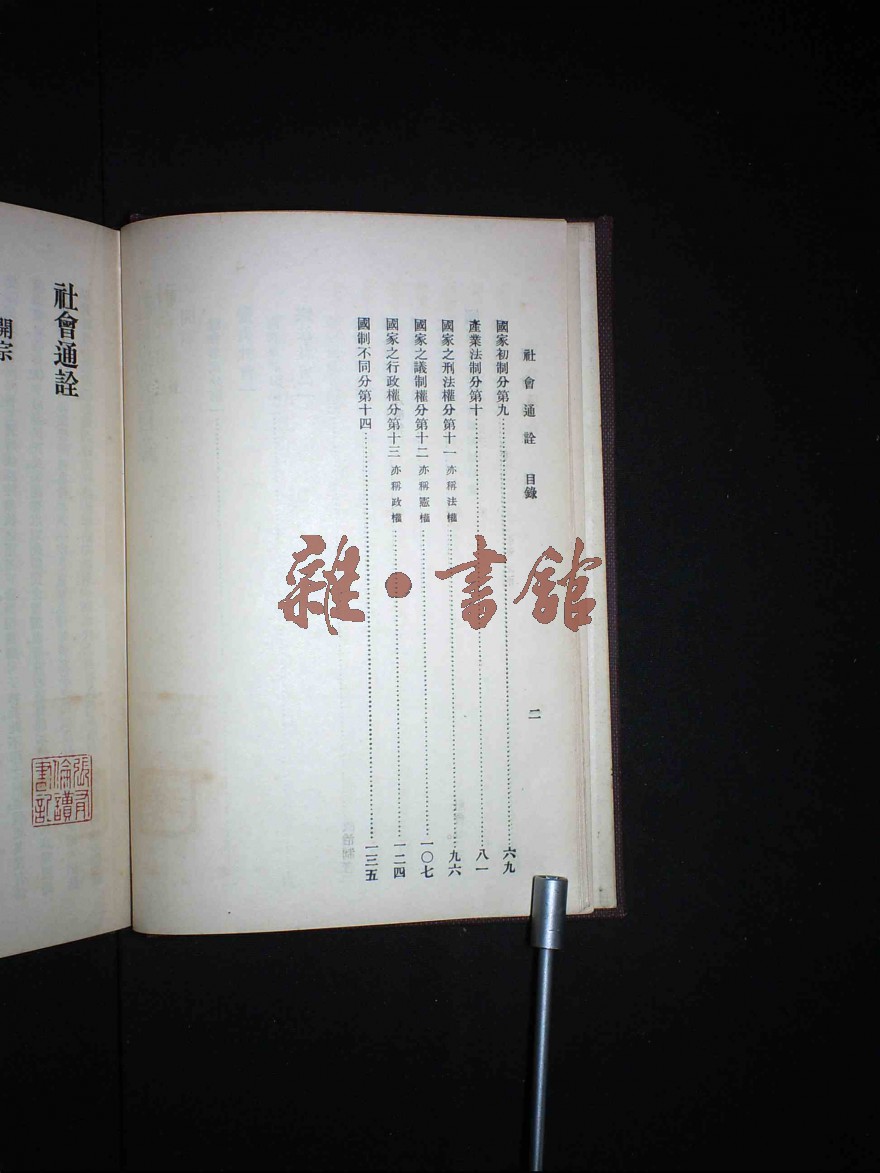 社會通詮 目錄 二
國家初制分第九 六九
產業法制分第十 八一
國家之刑法權分第十一 亦稱法權 九六
國家之議制權分第十二 亦稱憲權 一〇七
國家之行政權分第十三 亦稱政權 一二四
國制不同分第十四 一三五
社會通詮
開宗
張有倫讀書記
雜·書館